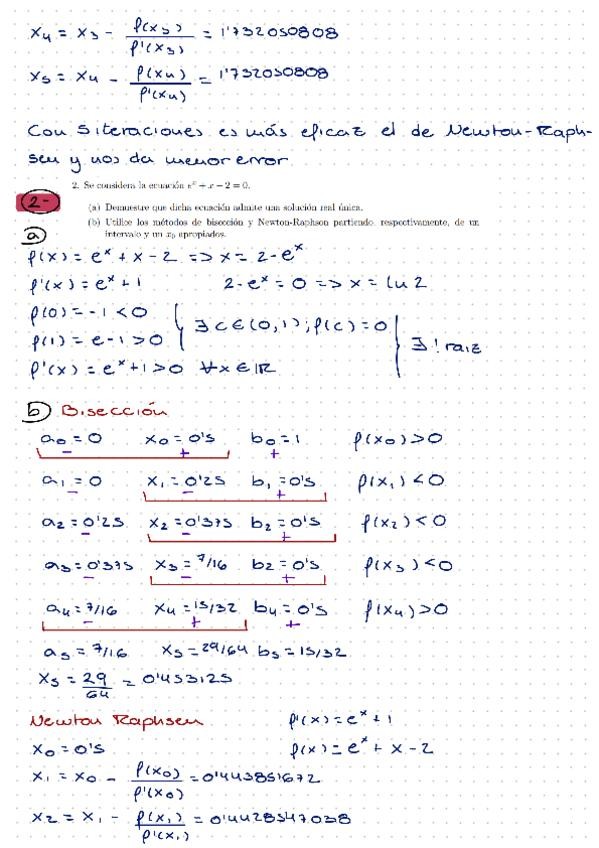 x₄ = x₃ - f(x₃)/f'(x₃) = 1'732050808
x₅ = x₄ - f(x₄)/f'(x₄) = 1'732050808
Con 5 iteraciones es más eficaz el de Newton-Raph-
sen y nos da menor error.
2. Se considera la ecuación eˣ + x − 2 = 0.
2-
(a) Demuestre que dicha ecuación admite una solución real única.
(b) Utilice los métodos de bisección y Newton-Raphson partiendo, respectivamente, de un
intervalo y un x₀ apropiados.
a
f(x) = eˣ + x - 2 => x = 2 - eˣ
f'(x) = eˣ + 1 2 - eˣ = 0 => x = ln 2
f(0) = -1 < 0
f(1) = e - 1 > 0 } ∃ c ∈ (0,1); f(c) = 0
f'(x) = eˣ + 1 > 0 ∀x ∈ ℝ } ∃! raiz
b Bisección
a₀ = 0 x₀ = 0's b₀ = 1 f(x₀) > 0
- + +
a₁ = 0 x₁ = 0'25 b₁ = 0's f(x₁) < 0
- +
a₂ = 0'25 x₂ = 0'375 b₂ = 0's f(x₂) < 0
- - +
a₃ = 0'375 x₃ = 7/16 b₂ = 0's f(x₃) < 0
- - +
a₄ = 7/16 x₄ = 15/32 b₄ = 0's f(x₄) > 0
- + +
a₅ = 7/16 x₅ = 29/64 b₅ = 15/32
x₅ = 29/64 = 0'453125
Newton Raphsen f'(x) = eˣ + 1
x₀ = 0's f(x) = eˣ + x - 2
x₁ = x₀ - f(x₀)/f'(x₀) = 0'443851672
x₂ = x₁ - f(x₁)/f'(x₁) = 0'4428547038